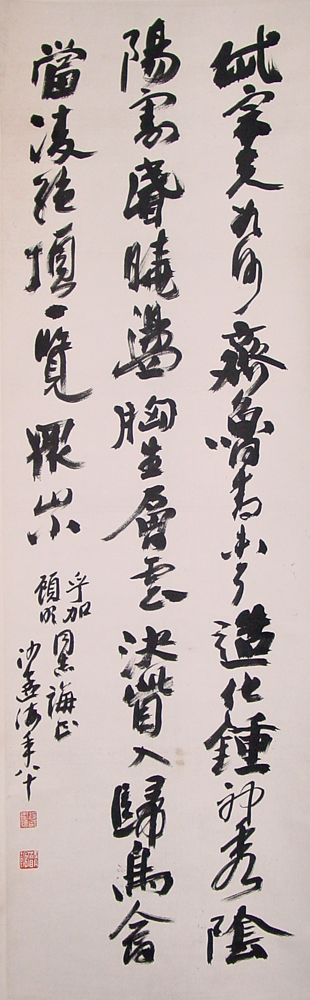 岱宗夫如何齊魯青未了造化鍾神秀陰
陽割昏曉盪胸生層雲決眥入歸鳥會
當凌絕頂一覽眾山小
乎加
同志誨正
沙孟海年八十